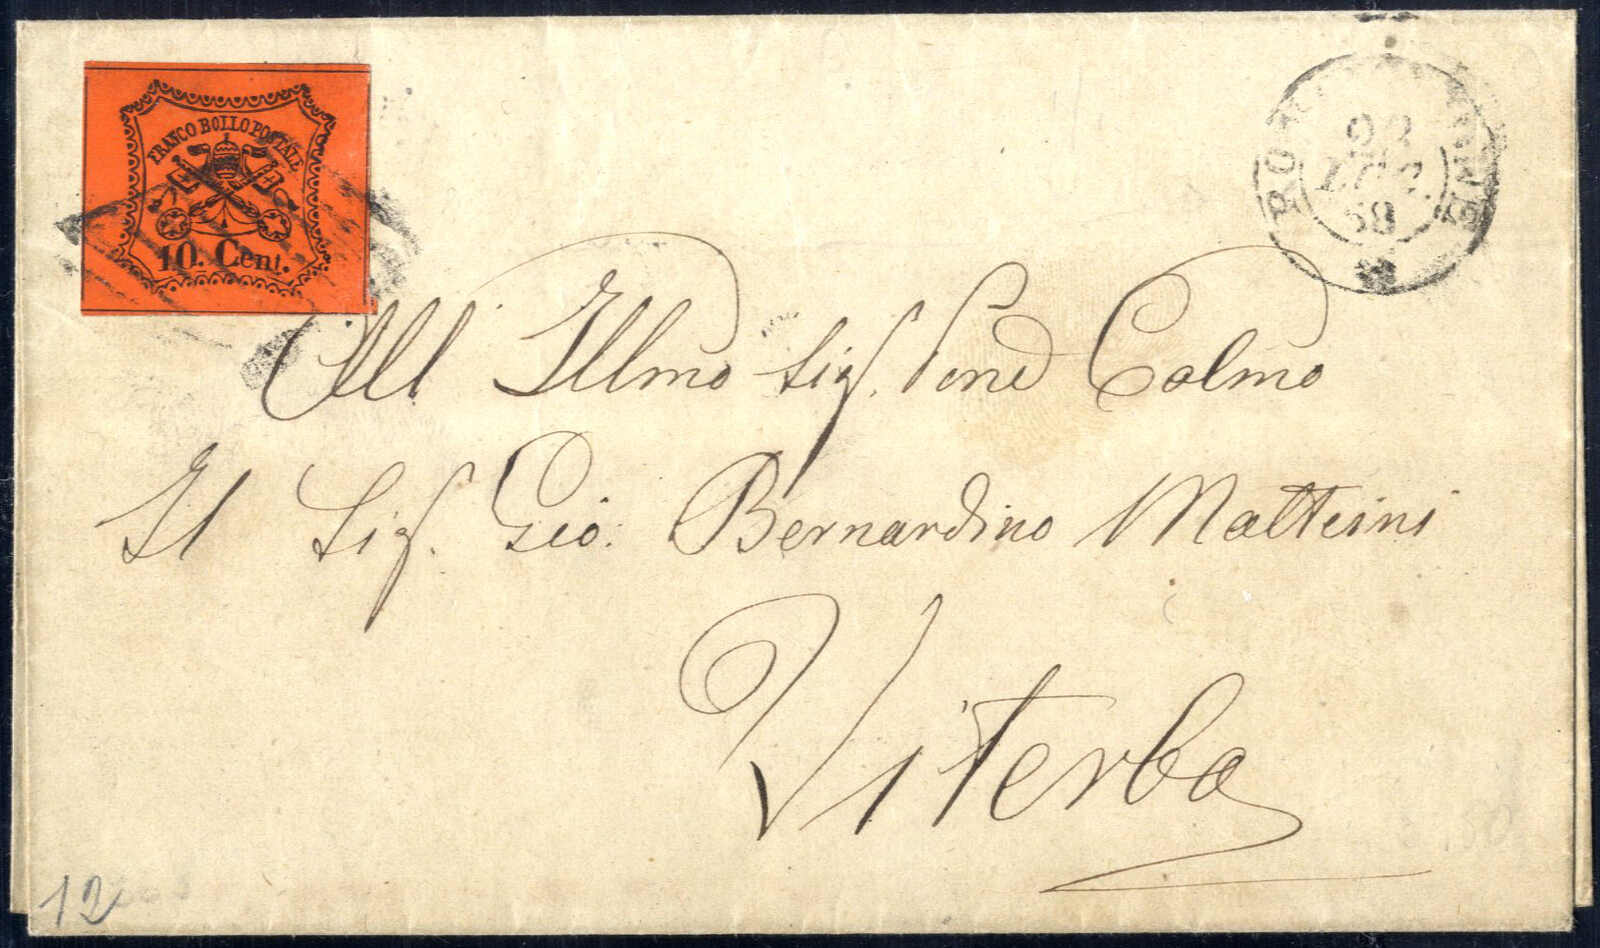 FRANCO BOLLO POSTALE
10. Cent.
68
All Illmo Sig. Pone Colmo
Il Sig. Gio: Bernardino Matteini
Viterbo
12